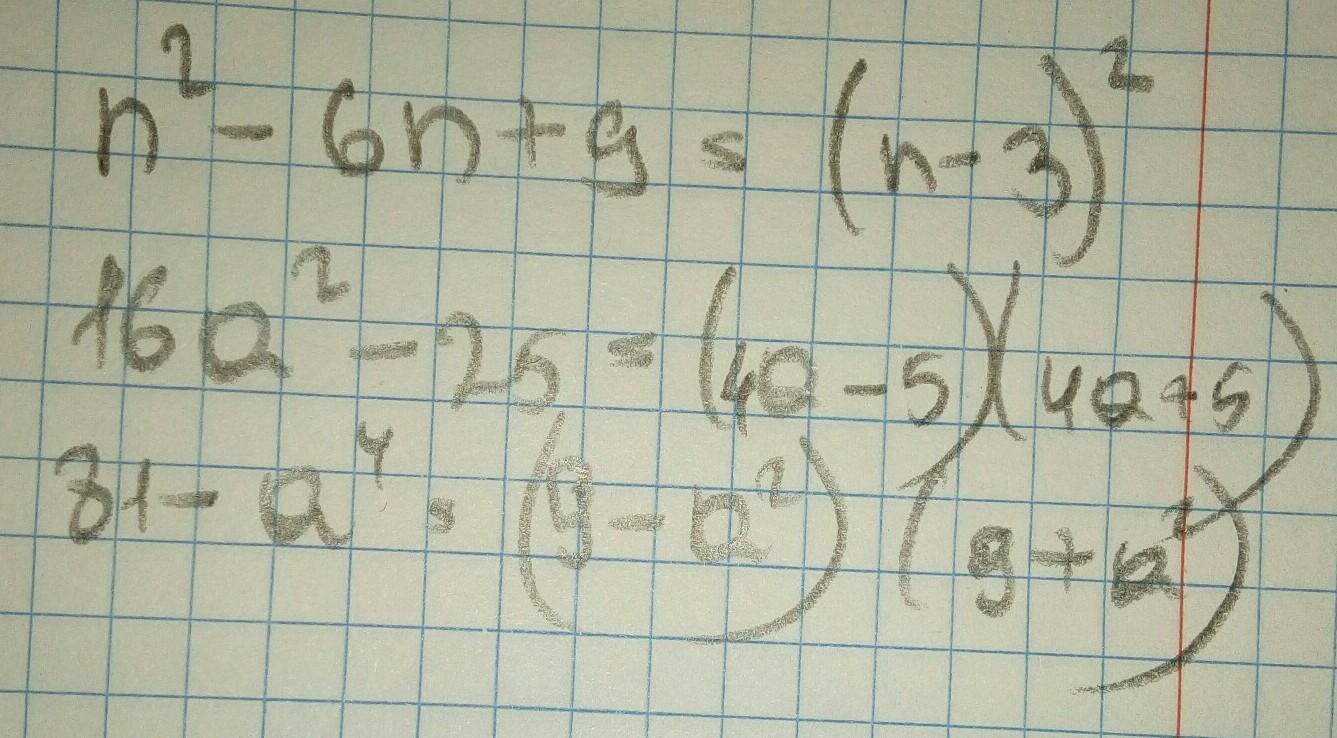 n² - 6n + 9 = (n - 3)²
16a² - 25 = (4a - 5)(4a + 5)
81 - a⁴ = (9 - a²)(9 + a²)